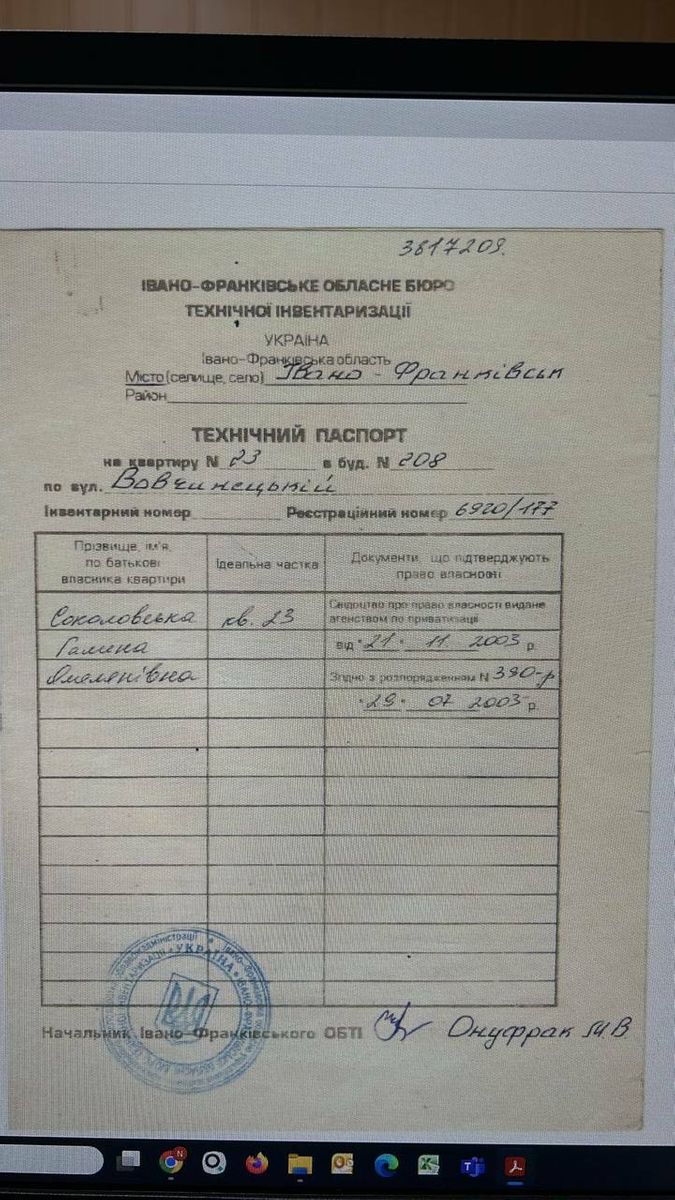 3817209.
ІВАНО-ФРАНКІВСЬКЕ ОБЛАСНЕ БЮРО
ТЕХНІЧНОЇ ІНВЕНТАРИЗАЦІЇ
УКРАЇНА
Івано-Франківська область
Місто (селище, село) Івано - Франківськ
Район
ТЕХНІЧНИЙ ПАСПОРТ
на квартиру N 23 в буд. N 208
по вул. Вовчинецькій
Інвентарний номер Реєстраційний номер 6920/177
Прізвище, ім'я,
по батькові
власника квартири
Ідеальна частка
Документи, що підтверджують
право власності
Соколовська кв. 23 Свідоцтво про право власності видане
агенством по приватизації
Галина від "21" 11. 2003 р.
Омелянівна Згідно з розпорядженням N 390-р
"29" 07 2003 р.
УКРАЇНА
Начальник Івано-Франківського ОБТІ Онуфрак М.В